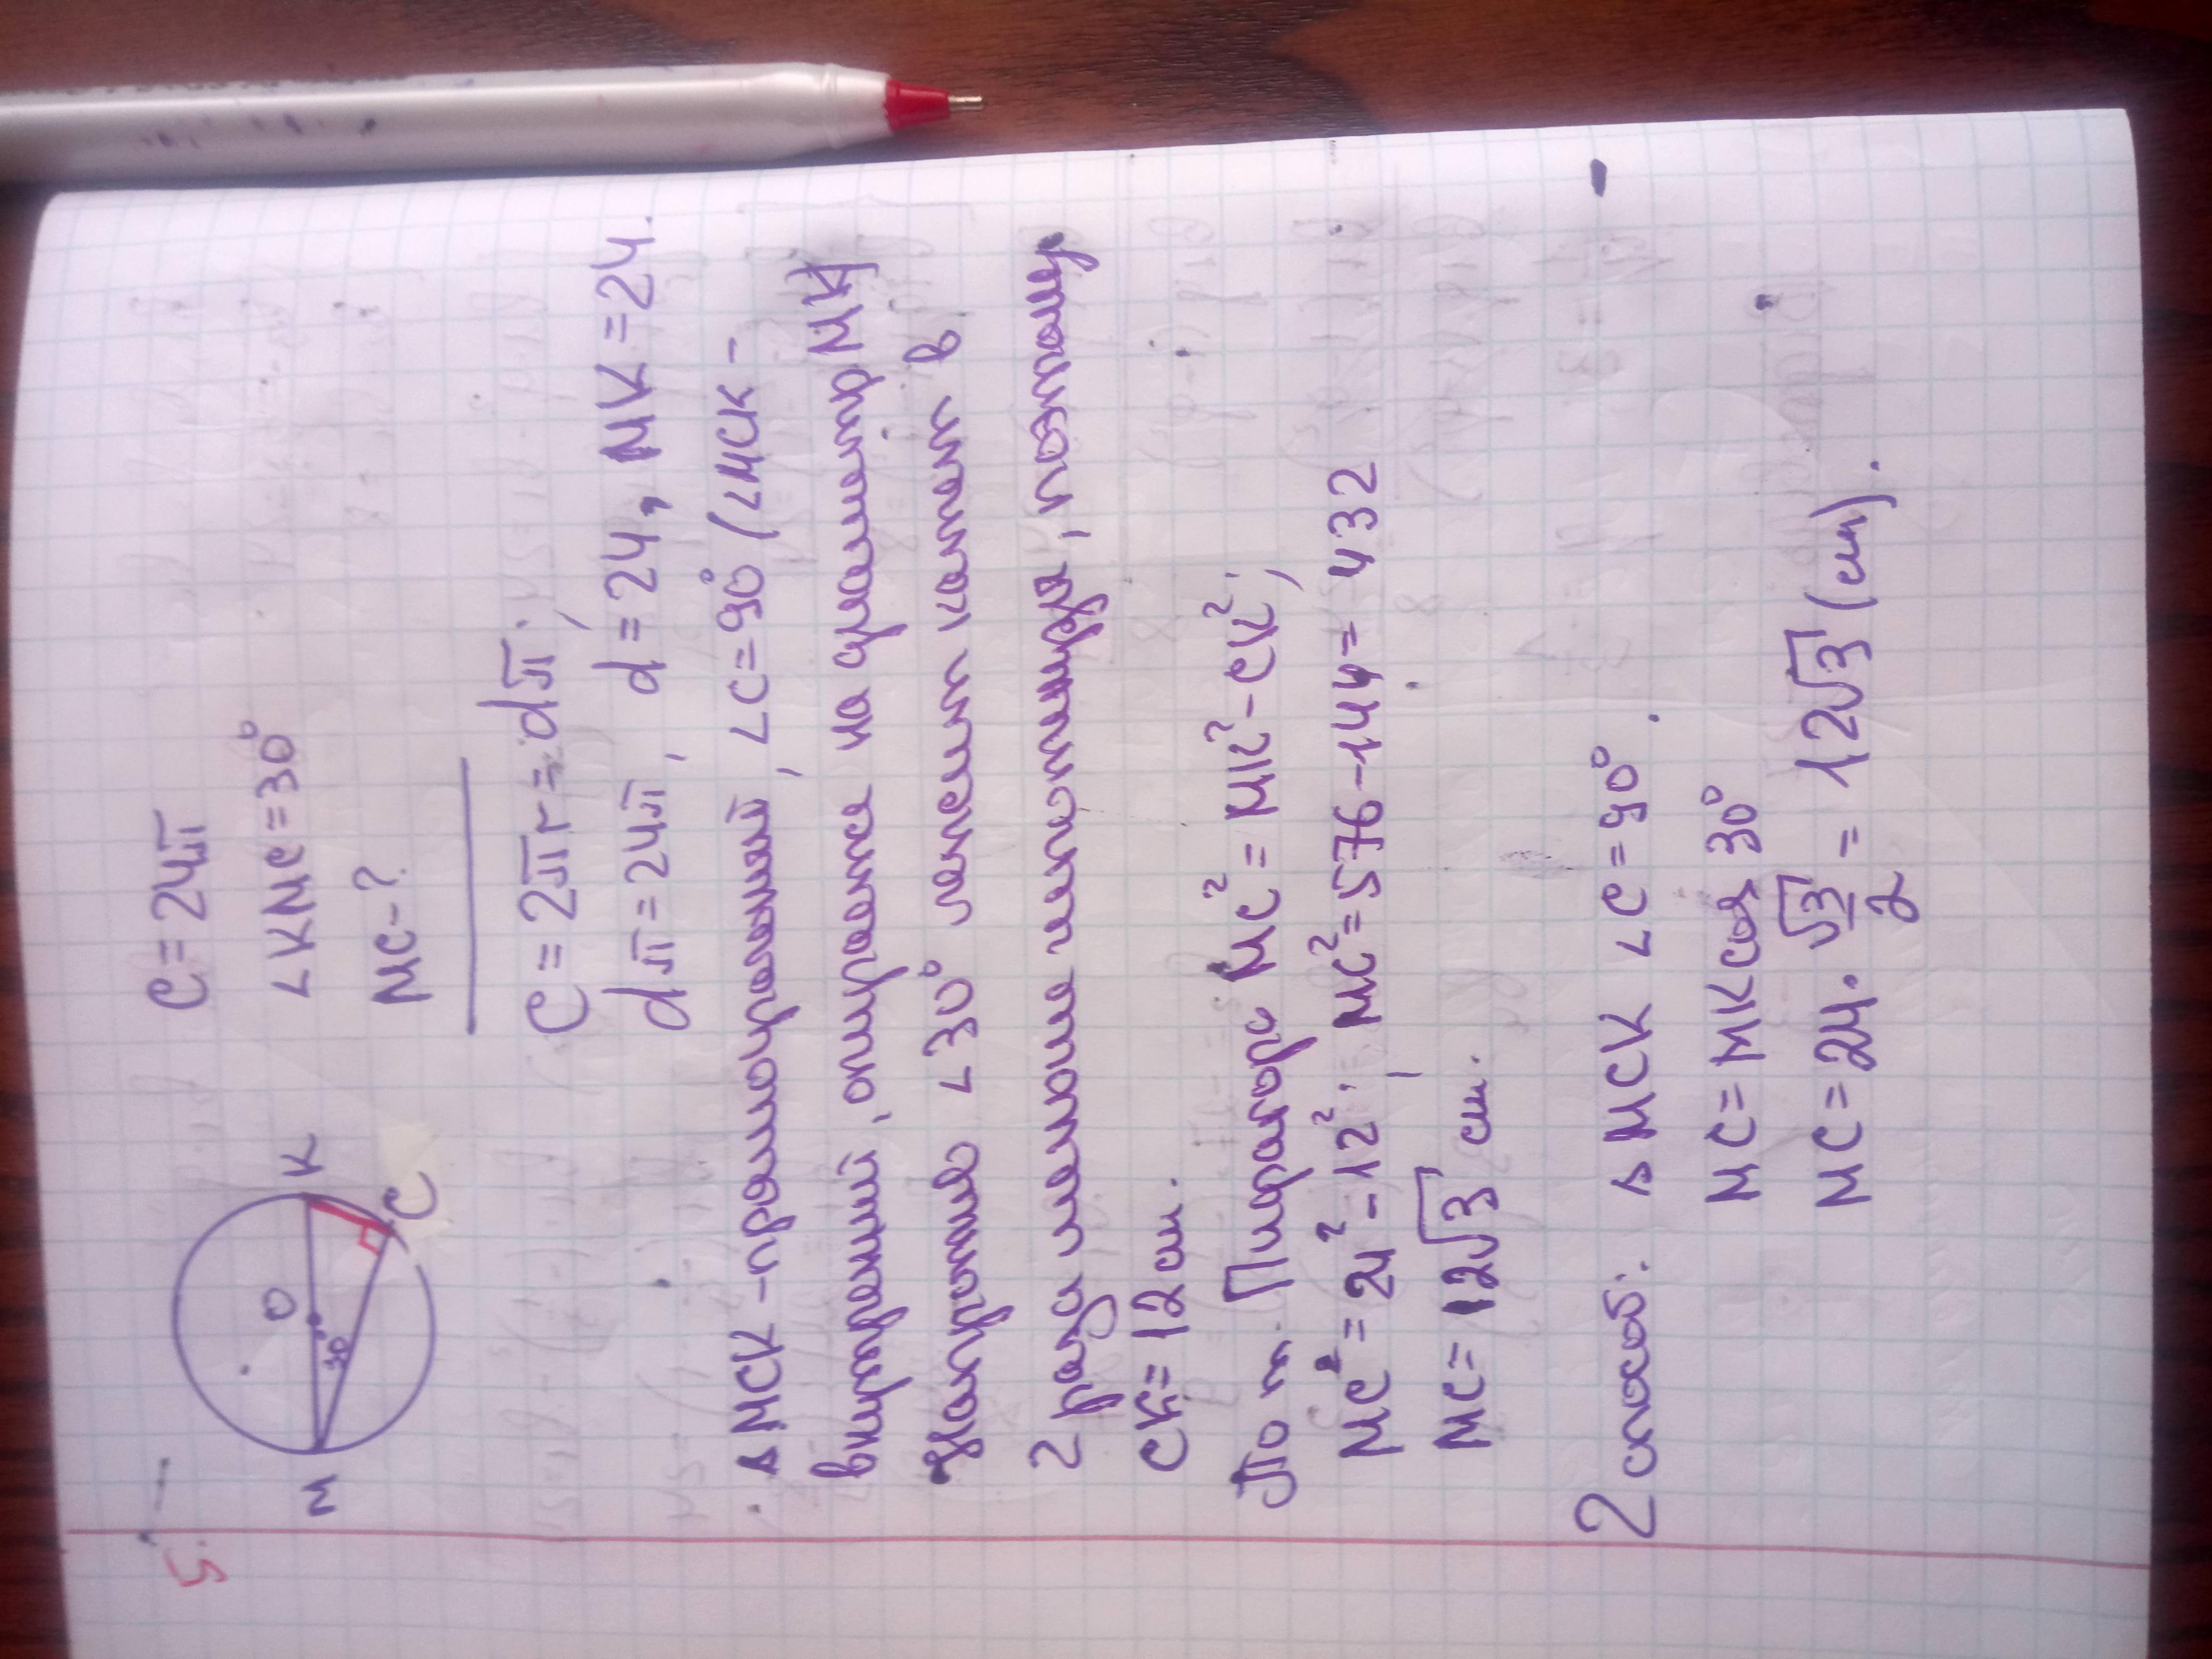 5
M
O
K
30
C
C = 24π
∠KMC = 30°
MC - ?
C = 2πr = dπ;
dπ = 24π, d = 24, MK = 24.
△ MCK - прямоугольный, ∠C = 90° (∠MCK -
вписанный, опирается на диаметр MK)
Напротив ∠30° лежит катет в
2 раза меньше гипотенузы, поэтому
CK = 12 см.
По т. Пифагора MC² = MK² - CK²;
MC² = 24² - 12²; MC² = 576 - 144 = 432
MC = 12√3 см.
2 способ: △ MCK ∠C = 90°.
MC = MK cos 30°
MC = 24 · √3/2 = 12√3 (см).